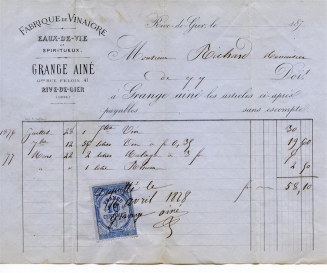 FABRIQUE DE VINAIGRE
Rive-de-Gier, le 187
EAUX-DE-VIE
ET
SPIRITUEUX
Monsieur Richard
GRANGE AINÉ
Gde RUE FELOIN, 41
RIVE-DE-GIER
(LOIRE)
de Doit
à Grange ainé les articles ci-après
payables sans escompte
1876 Juillet 28 1 Vin 30
7bre 12 56 litres Vin a f 0,35 19 60
77 Mars 22 2 litres Malaga a 3 f 6
" " 1 litre Rhum 2 50
58,10
Acquitté le
16 avril 1878
Grange ainé